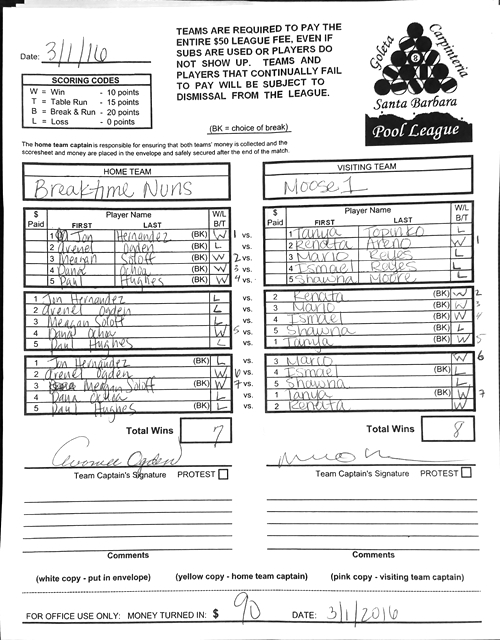 Date: 3/1/16
TEAMS ARE REQUIRED TO PAY THE
ENTIRE $50 LEAGUE FEE, EVEN IF
SUBS ARE USED OR PLAYERS DO
NOT SHOW UP. TEAMS AND
PLAYERS THAT CONTINUALLY FAIL
TO PAY WILL BE SUBJECT TO
DISMISSAL FROM THE LEAGUE.
SCORING CODES
W = Win - 10 points
T = Table Run - 15 points
B = Break & Run - 20 points
L = Loss - 0 points
(BK = choice of break)
Goleta Carpinteria
8
Santa Barbara
Pool League
The home team captain is responsible for ensuring that both teams' money is collected and the
scoresheet and money are placed in the envelope and safely secured after the end of the match.
HOME TEAM
Breaktime Nuns
$ Paid Player Name FIRST LAST W/L B/T
1 Jon Hernandez (BK) W 1 vs.
2 Avenel Ogden (BK) L vs.
3 Meagan Soloff (BK) W 2 vs.
4 Dana Ochoa (BK) W 3 vs.
5 Paul Hughes (BK) W 4 vs.
1 Jon Hernandez L vs.
2 Avenel Ogden L vs.
3 Meagan Soloff L vs.
4 Dana Ochoa W 5 vs.
5 Paul Hughes L vs.
1 Jon Hernandez (BK) L vs.
2 Avenel Ogden W 6 vs.
3 Meagan Soloff W 7 vs.
4 Dana Ochoa L vs.
5 Paul Hughes (BK) L vs.
Total Wins 7
Team Captain's Signature PROTEST
Comments
VISITING TEAM
Moose 1
$ Paid Player Name FIRST LAST W/L B/T
1 Tanya Topinko L
2 Renata Areno W 1
3 Mario Reyes L
4 Ismael Reyes L
5 Shawna Moore L
2 Renata (BK) W 2
3 Mario (BK) W 3
4 Ismael (BK) W 4
5 Shawna (BK) L
1 Tanya (BK) W 5
3 Mario W 6
4 Ismael (BK) L
5 Shawna (BK) L
1 Tanya (BK) W 7
2 Renata W
Total Wins 8
Team Captain's Signature PROTEST
Comments
(white copy - put in envelope) (yellow copy - home team captain) (pink copy - visiting team captain)
FOR OFFICE USE ONLY: MONEY TURNED IN: $ 90 DATE: 3/1/2016